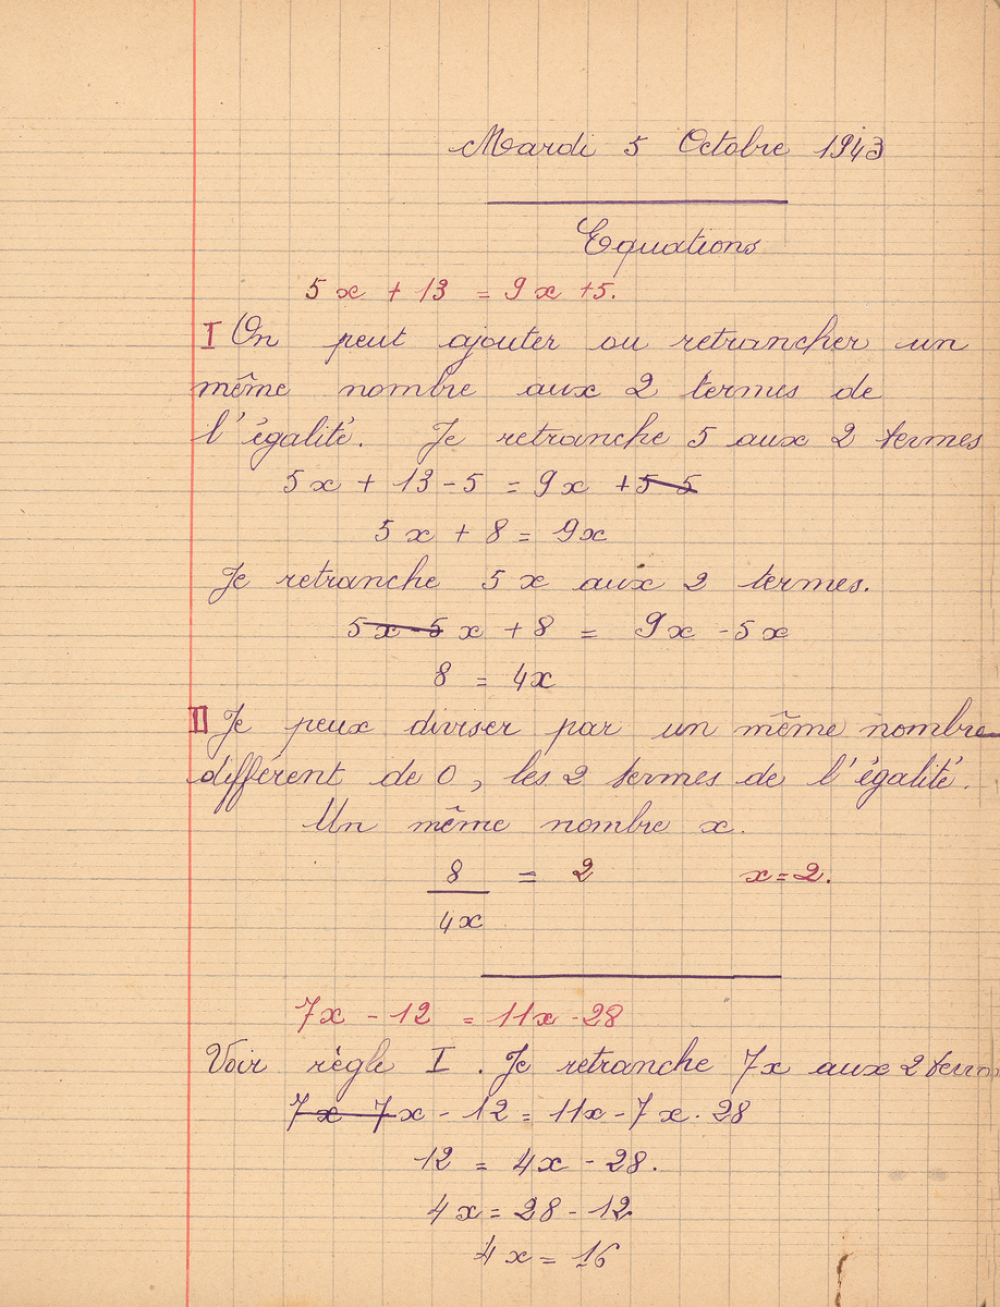 Mardi 5 Octobre 1943
Equations
5x + 13 = 9x +5.
I On peut ajouter ou retrancher un
même nombre aux 2 termes de
l'égalité. Je retranche 5 aux 2 termes
5x + 13 - 5 = 9x + 5 - 5
5x + 8 = 9x
Je retranche 5x aux 2 termes.
5x - 5x + 8 = 9x - 5x
8 = 4x
II Je peux diviser par un même nombre
différent de 0, les 2 termes de l'égalité.
Un même nombre x.
8 = 2 x = 2.
4x
7x - 12 = 11x - 28
Voir règle I. Je retranche 7x aux 2 term
7x - 7x - 12 = 11x - 7x - 28
12 = 4x - 28.
4x = 28 - 12
4x = 16